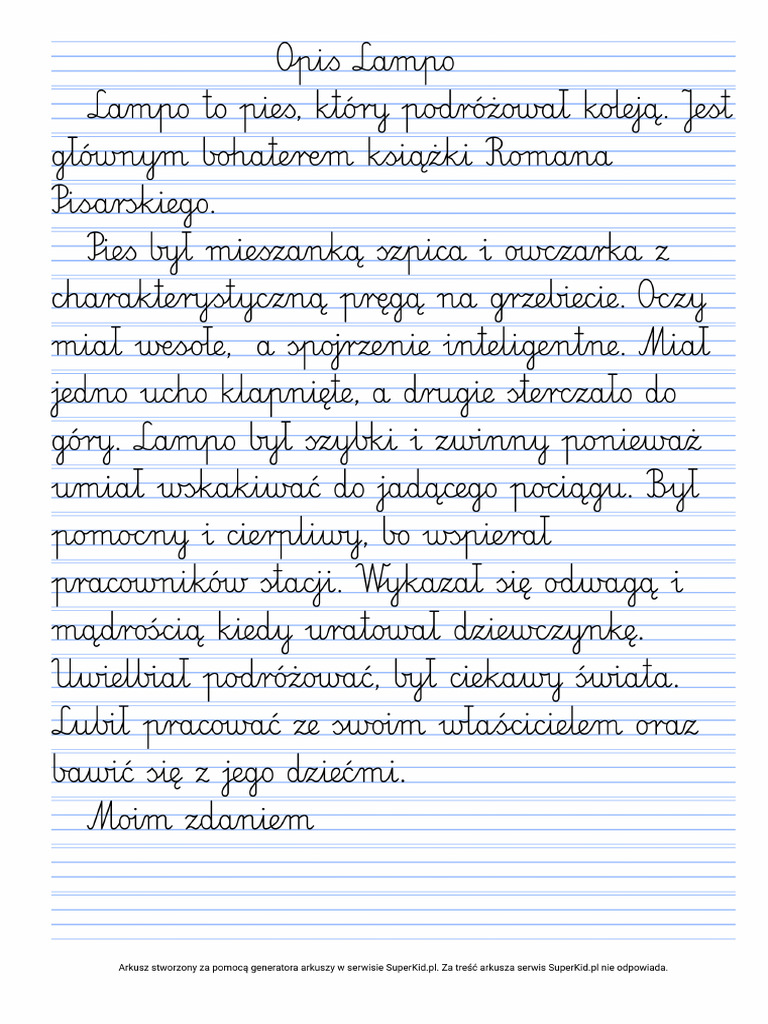 Opis Lampo
Lampo to pies, który podróżował koleją. Jest
głównym bohaterem książki Romana
Pisarskiego.
Pies był mieszanką szpica i owczarka z
charakterystyczną pręgą na grzebiecie. Oczy
miał wesołe,  a spojrzenie inteligentne. Miał
jedno ucho klapnięte, a drugie sterczało do
góry. Lampo był szybki i zwinny ponieważ
umiał wskakiwać do jadącego pociągu. Był
pomocny i cierpliwy, bo wspierał
pracowników stacji. Wykazał się odwagą i
mądrością kiedy uratował dziewczynkę.
Uwielbiał podróżować, był ciekawy świata.
Lubił pracować ze swoim właścicielem oraz
bawić się z jego dziećmi.
Moim zdaniem
Arkusz stworzony za pomocą generatora arkuszy w serwisie SuperKid.pl. Za treść arkusza serwis SuperKid.pl nie odpowiada.